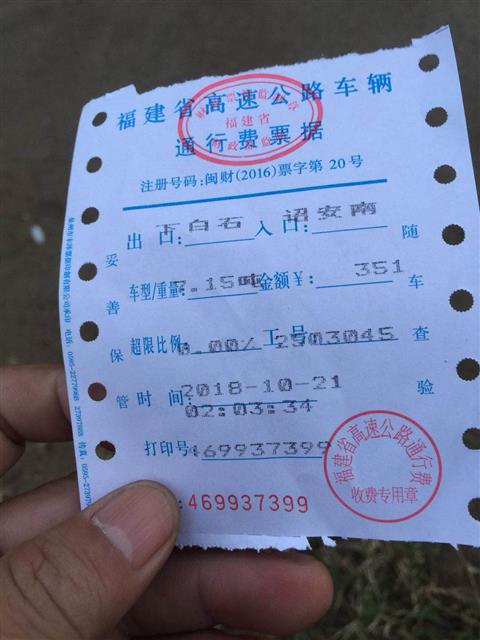 福建省高速公路车辆
通行费票据
福建省
注册号码:闽财(2016)票字第 20 号
出口: 下白石 入口: 诏安南
车型/重量: 7.15吨 金额¥: 351
超限比例: 0.00% 工号 2503045
时间: 2018-10-21
02:03:34
打印号 469937399
:469937399
妥善保管
随车查验
福建省高速公路通行费
收费专用章